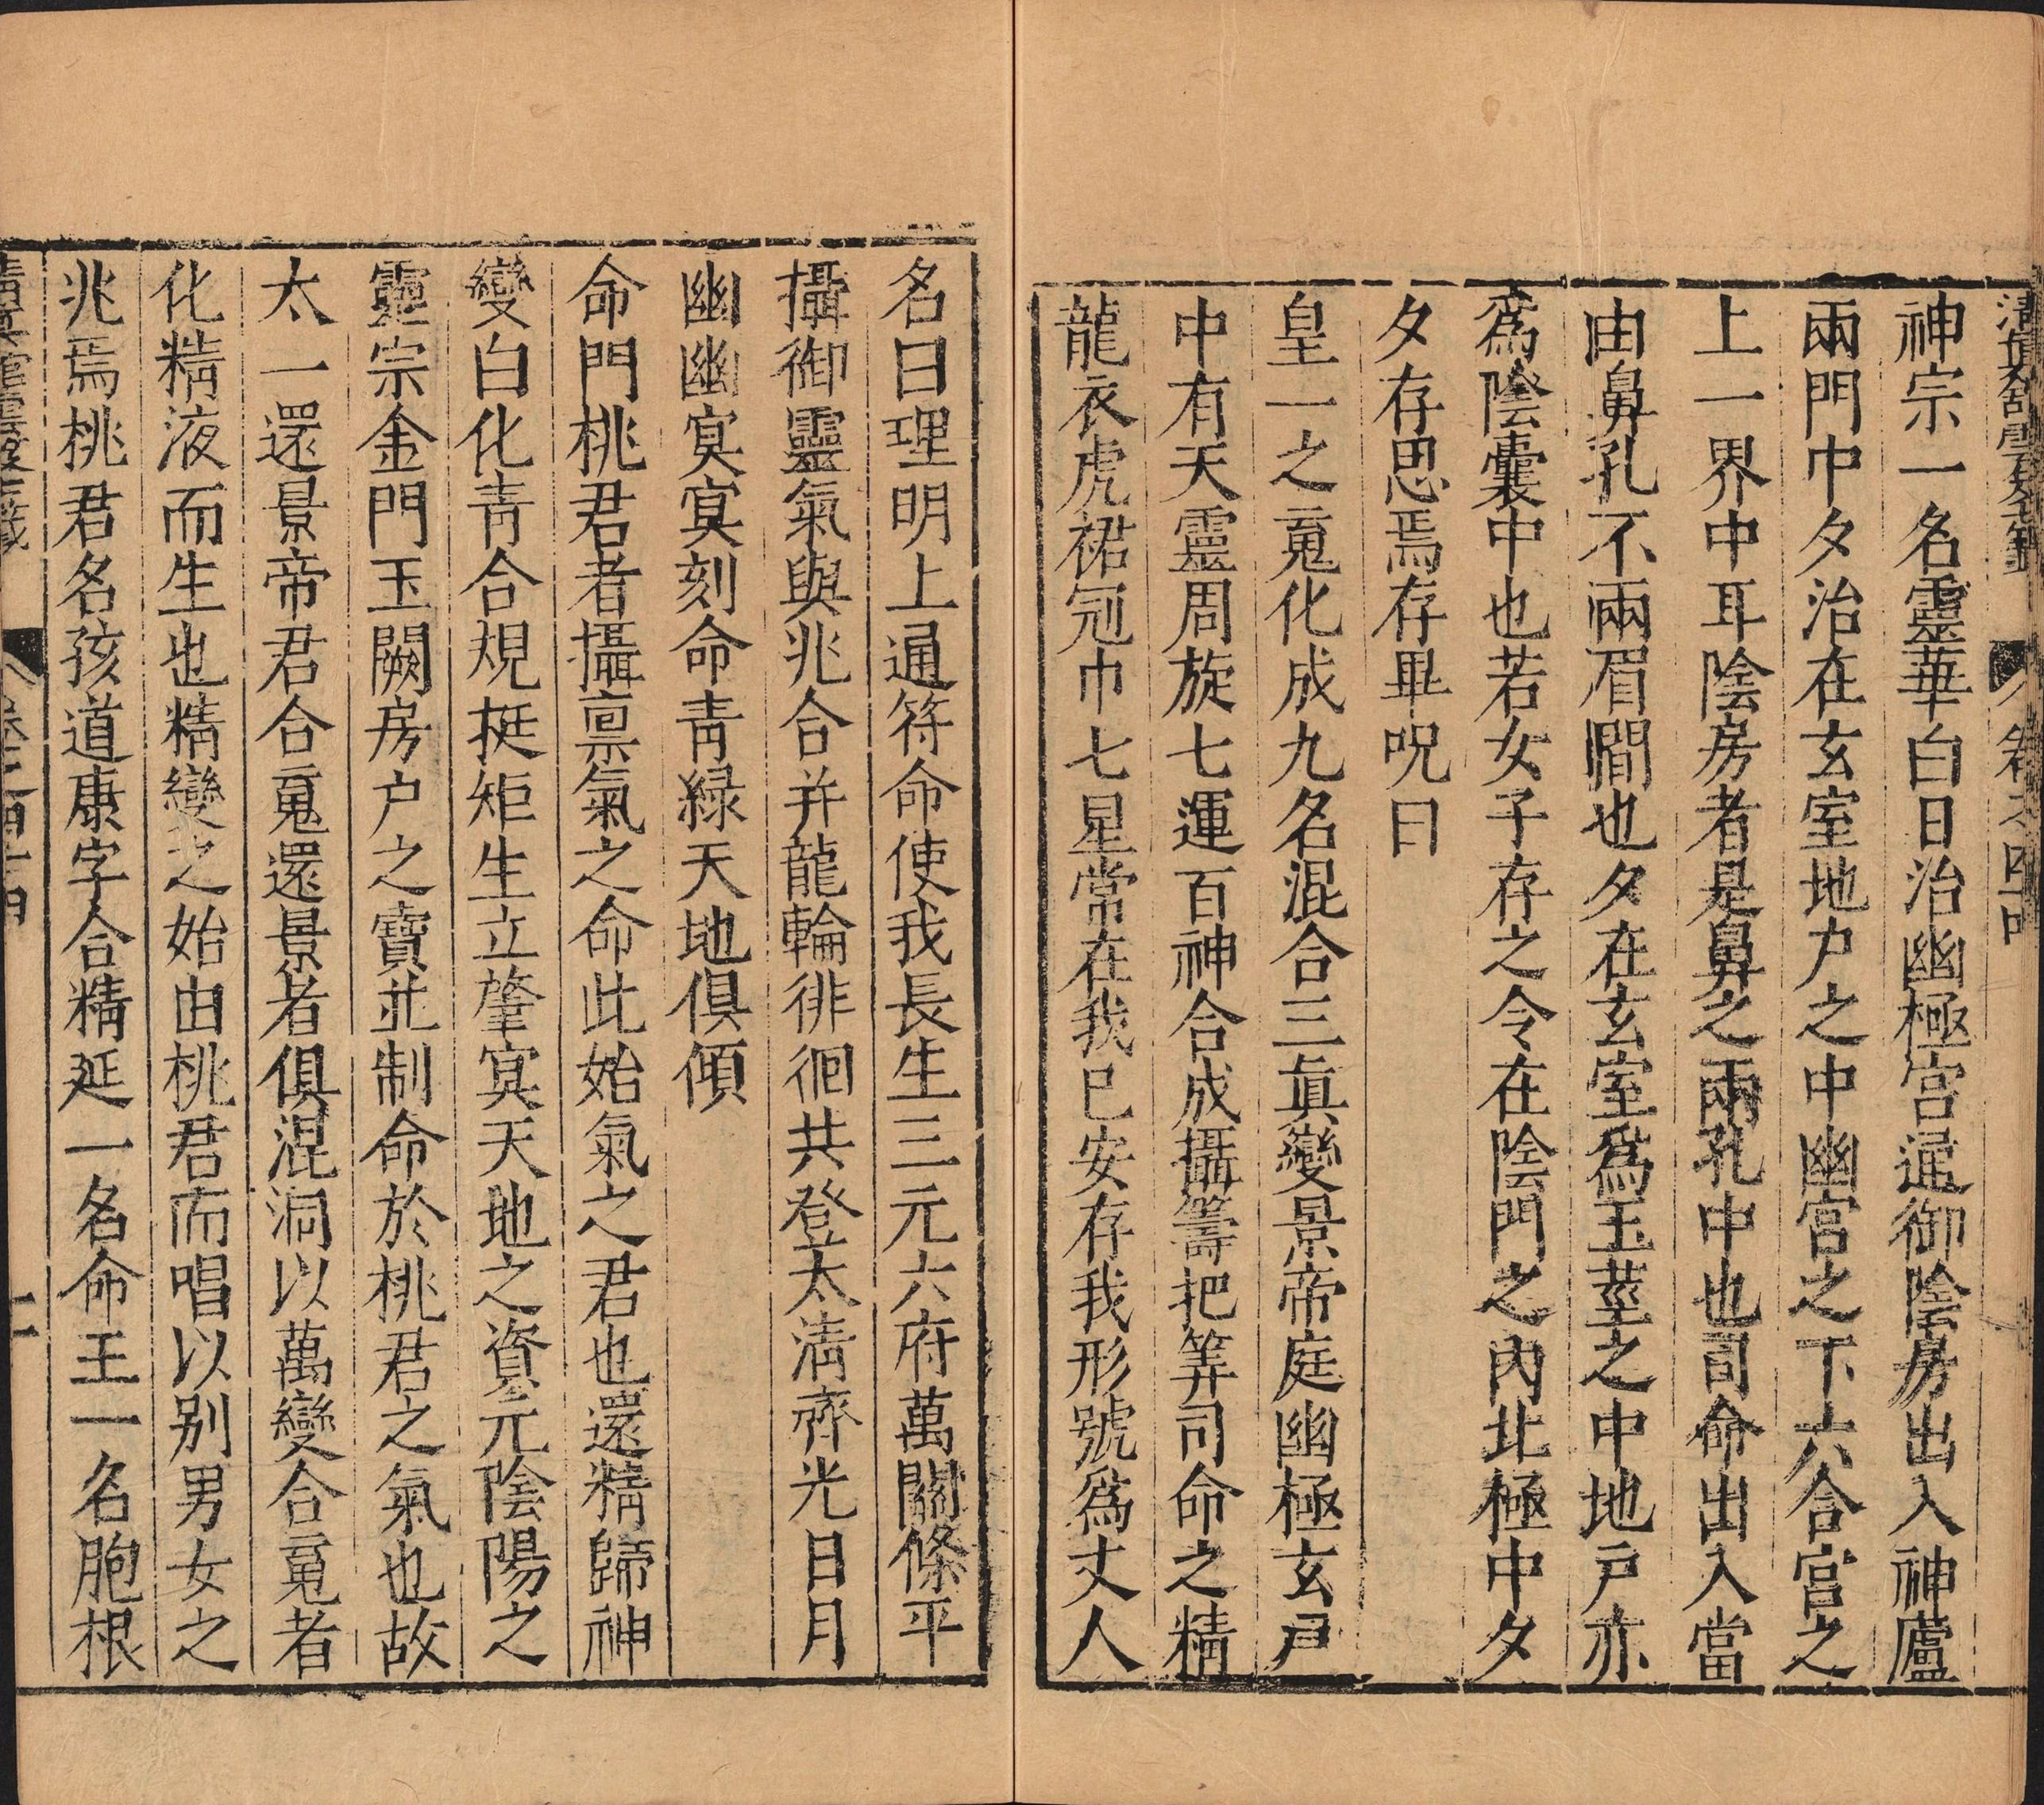 清眞舘雲笈七籤 卷之四四
神宗一名靈華白日治幽極宮通御陰房出入神廬
兩門中夕治在玄室地户之中幽宮之下六合宮之
上一界中耳陰房者是鼻之兩孔中也司命出入當
由鼻孔不兩眉間也夕在玄室爲玉莖之中地戸亦
爲陰囊中也若女子存之令在陰門之內北極中夕
夕存思焉存畢呪曰
皇一之䰟化成九名混合三眞變景帝庭幽極玄戸
中有天靈周旋七運百神合成攝籌把筭司命之精
龍衣虎裙冠巾七星常在我已安存我形號爲丈人
名曰理明上通符命使我長生三元六府萬關條平
攝御靈氣與兆合并龍輪徘徊共登太淸齊光日月
幽幽寘寘刻命靑緑天地俱傾
命門桃君者攝禀氣之命此始氣之君也還精歸神
變白化靑合規挺矩生立肇寘天地之資元陰陽之
靈宗金門玉闕房户之寶並制命於桃君之氣也故
太一還景帝君合䰟還景者俱混洞以萬變合䰟者
化精液而生也精變之始由桃君而唱以别男女之
兆焉桃君名孩道康字合精延一名命王一名胞根
清眞舘雲笈七籤 卷之四十四 十二